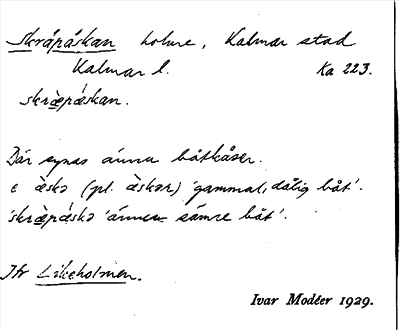 Skråpåskan holme, Kalmar stad
Kalmar l. Ka 223.
skræpǽskan.
Där synas ännu båtkåser.
ɛ æ̀skə (pl. æ̀skər) 'gammal, dålig båt'.
skræpæskə 'ännu sämre båt'.
Jfr Likeholmen.
Ivar Modéer 1929.